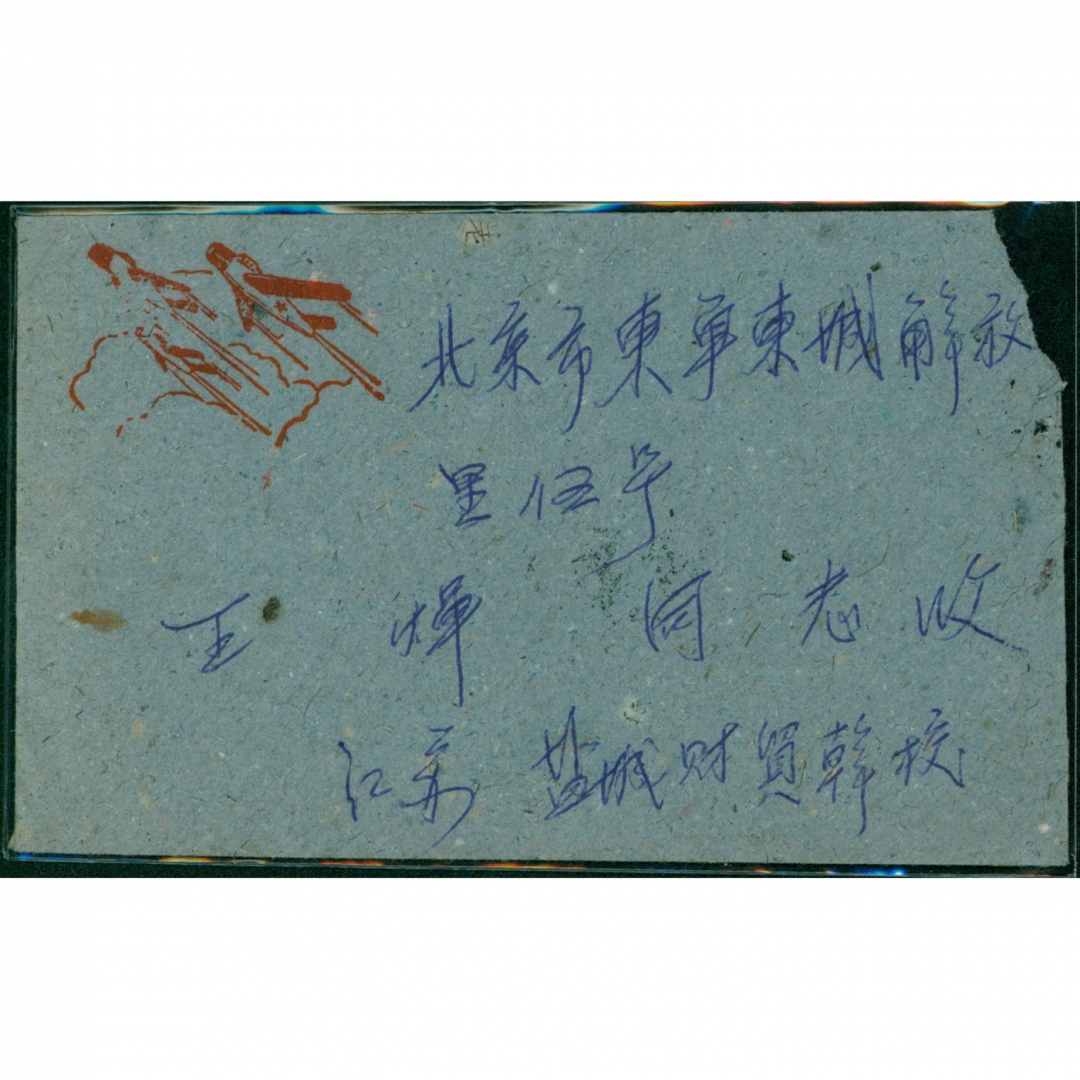 北京市東單東城解放
里伍号
王煇同志收
江苏盐城财貿幹校